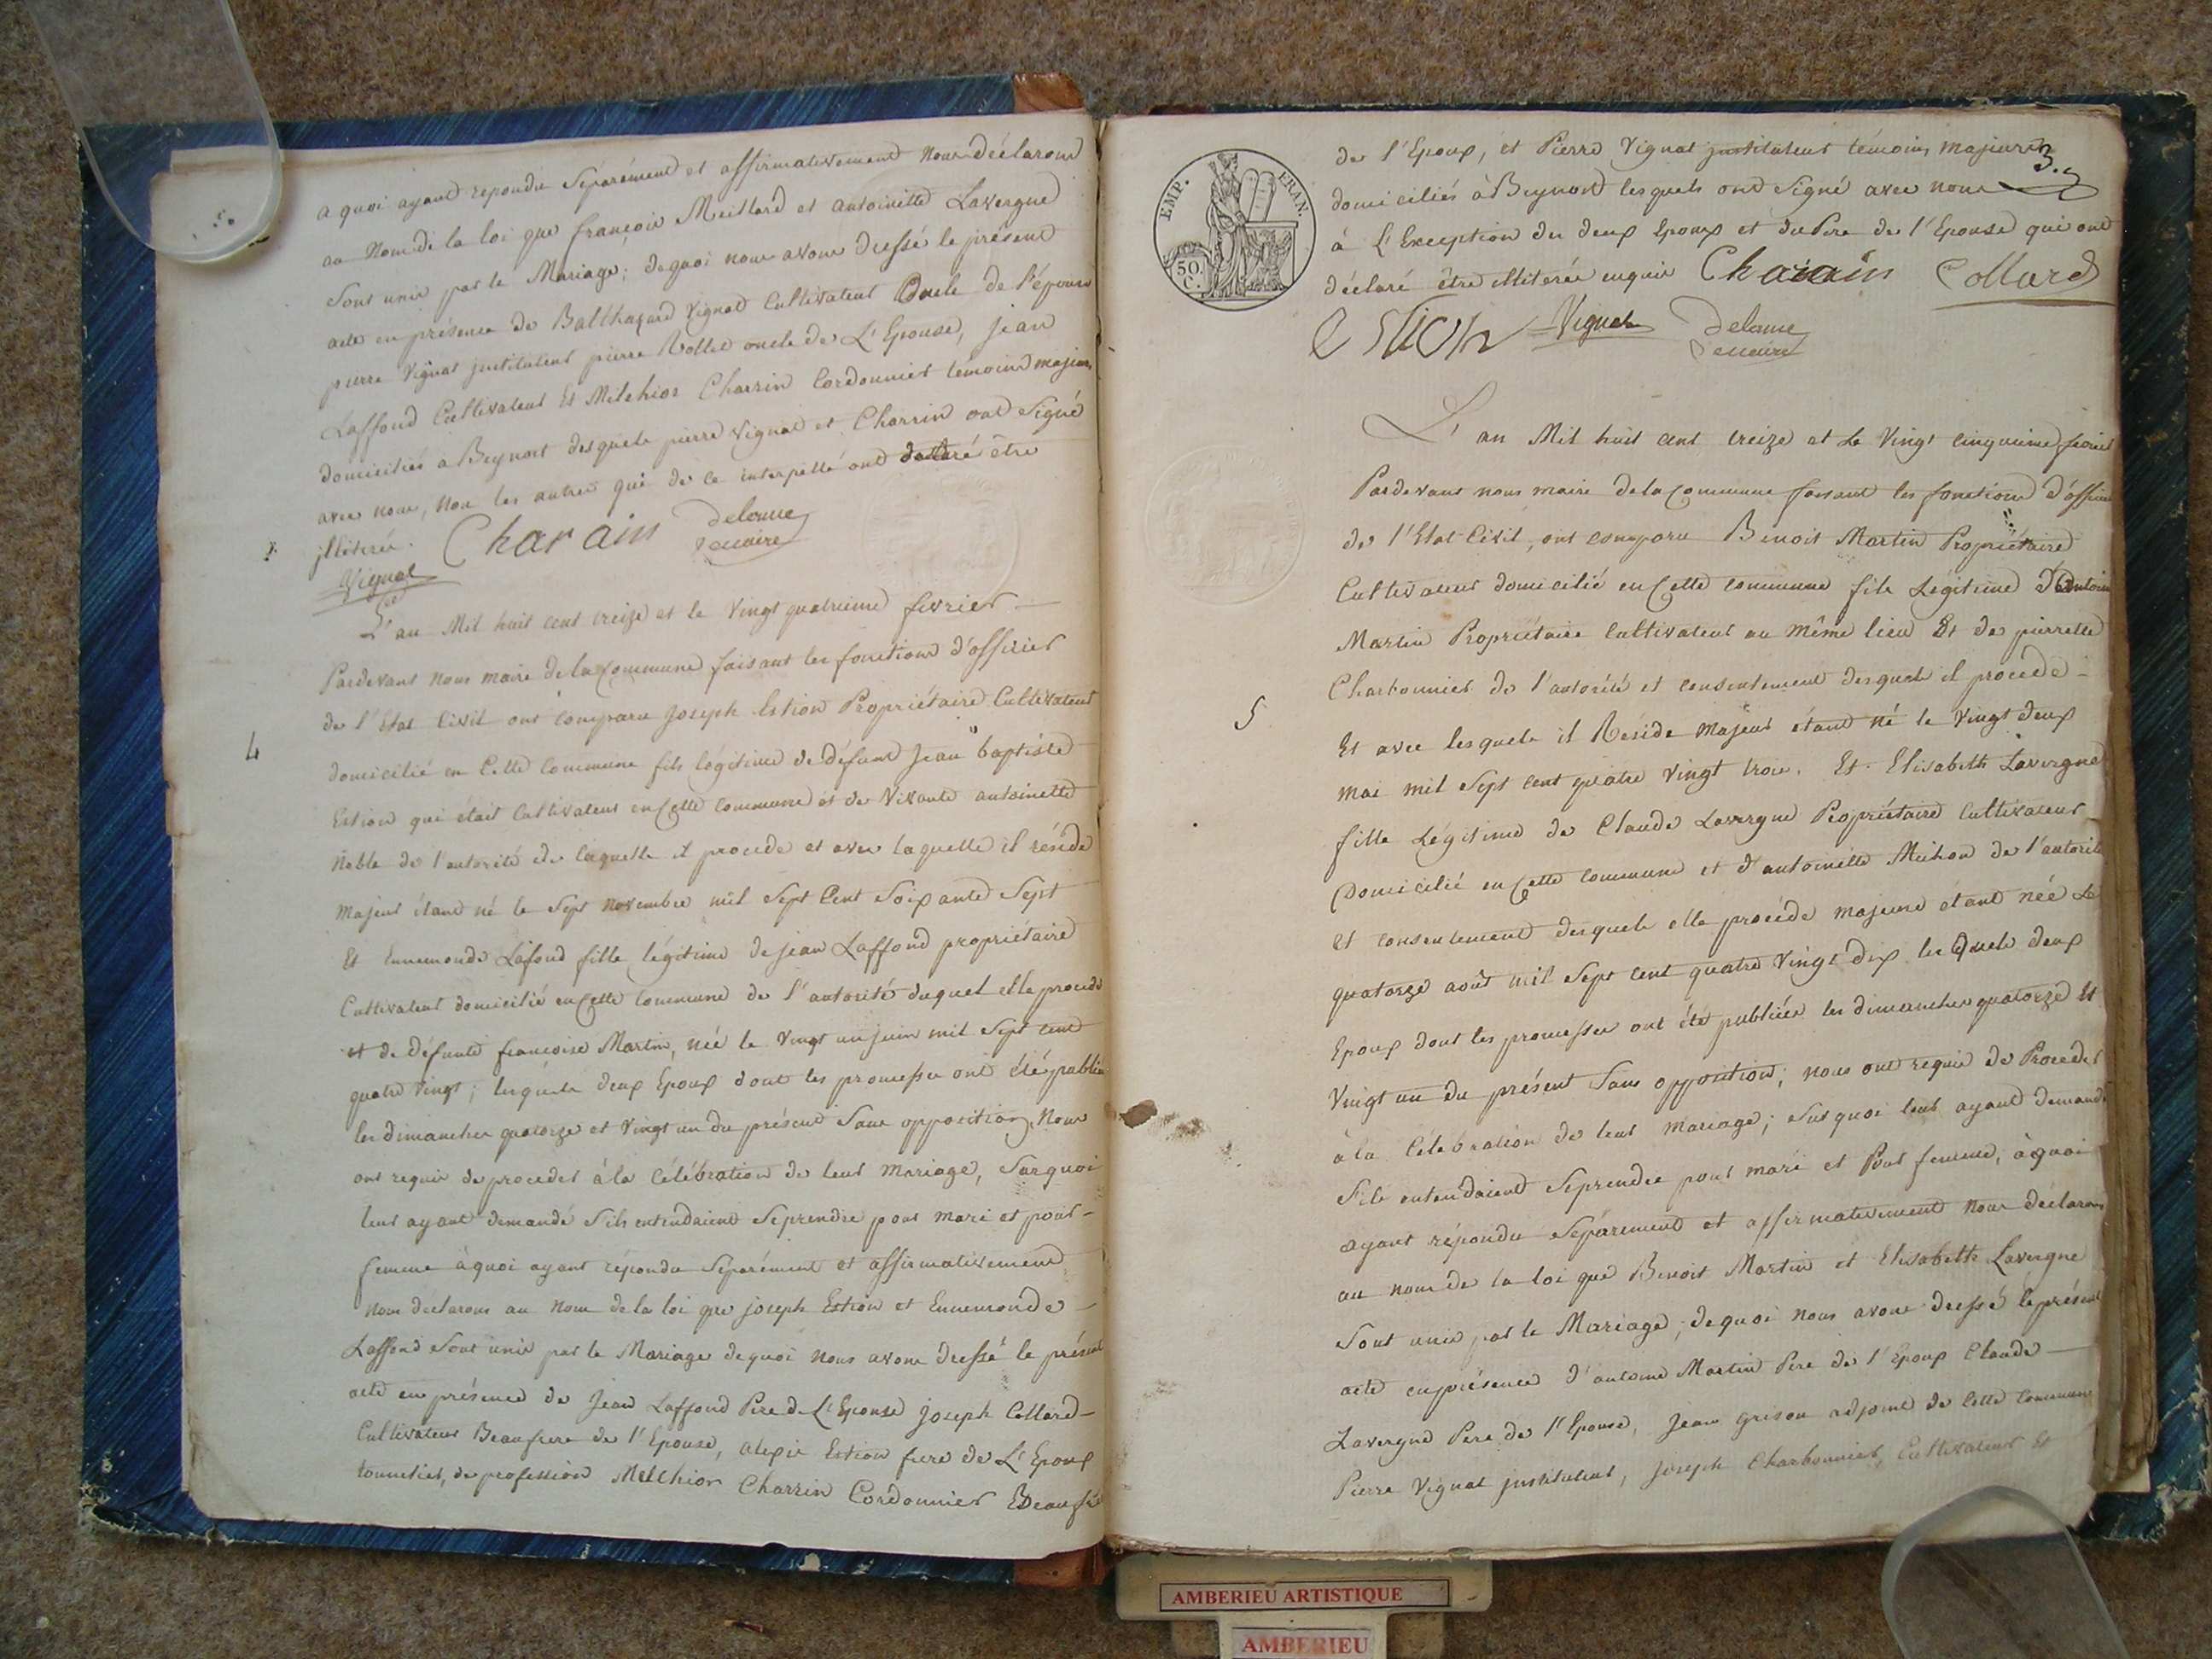 a quoi ayant repondu Séparément et affirmativement Nous déclarons
au Nom de la loi que françois Meillard et antoinette Lavergne
Sont unis par le Mariage; dequoi nous avons dressé le présent
acte en présence de Balthazard Vignat Cultivateur Oncle de l'épouse
pierre Vignat jnstituteur pierre Vollet oncle de L'Epouse, jean
Laffond Cultivateur Et Melchior Charrin Cordonnier témoins majeurs
domiciliés a Beynost desquels pierre Vignat et Charrin ont Signé
avec nous, Non les autres qui de ce interpellé ont déclaré être
jllitérés. Charain Delorme
Vignat maire
L'an Mil huit cent treize et le Vingt quatrieme fevrier
Pardevant nous maire de la Commune faisant les fonctions d'officier
de l'Etat Civil ont comparu Joseph Estion Propriétaire Cultivateur
4
domicilié en Cette Commune fils légitime de défunt Jean baptiste
Estion qui était Cultivateur en Cette Commune et de Vivante antoinette
Noble de l'autorité de laquelle il procede et avec laquelle il réside
Majeur étant né le Sept Novembre mil Sept Cent Soixante Sept
Et Ennemonde Lafond fille légitime de jean Laffond propriétaire
Cultivateur domicilié en Cette Commune de l'autorité duquel elle procede
et de défunte françoise Martin, née le Vingt un juin mil Sept cent
quatre Vingt; lesquels deux Epoux dont les promesses ont été publiées
les dimanches quatorze et Vingt un du présent Sans opposition, Nous
ont requis de proceder à la Célébration de leur Mariage, Surquoi
leur ayant demandé S'ils entendaient Seprendre pour mari et pour
femme àquoi ayant répondu Séparément et affirmativement
Nous declarons au Nom de la loi que joseph Estion et Ennemonde
Laffond Sont unis par le Mariage dequoi Nous avons dressé le présent
acte en présence de Jean Laffond Pere de L'Epouse joseph Collard
Cultivateur Beaufrere de l'Epouse, alexis Estion frere de L'Epoux
tonnelier, de profession Melchior Charrin Cordonnier Beaufrere
EMP. FRAN.
50. C.
de l'Epoux, et Pierre Vignat jnstituteur témoins majeurs
3.
domiciliés à Beynost lesquels ont Signé avec nous
à L'Exception des deux Epoux et du Pere de l'Epouse qui ont
déclaré être illitérés enquis Charain Collard
Vignat Delorme
maire
L'an Mil huit cent treize et Le Vingt cinquieme fevrier
Pardevant nous maire de la Commune faisant les fonctions d'officier
de l'Etat Civil, ont comparu Benoit Martin Propriétaire
Cultivateur domicilié en Cette commune fils Légitime d'Antoine
Martin Propriétaire Cultivateur au Même lieu Et de pierrette
Charbonnier de l'autorité et consentement desquels il procede
5
Et avec lesquels il Réside Majeur étant né le Vingt deux
mai mil Sept cent quatre Vingt trois. Et Elisabeth Lavergne
fille Légitime de Claude Lavergne Propriétaire Cultivateur
Domicilié en Cette commune et d'antoinette Michon de l'autorité
et consentement desquels elle procéde majeure étant née Le
quatorze août mil Sept cent quatre Vingt dix lesquels deux
Epoux dont les promesses ont été publiées les dimanches quatorze Et
Vingt un du présent Sans opposition; nous ont requis de Proceder
à la Célébration de leur Mariage; Sur quoi leur ayant demandé
S'ils entendaient Seprendre pour mari et Pour femme, àquoi
ayant répondu Séparément et affirmativement Nous déclarons
au nom de la loi que Benoit Martin et Elisabeth Lavergne
Sont unis par le Mariage, dequoi nous avons dressé le présent
acte enprésence d'antoine Martin Pere de l'Epoux Claude
Lavergne Pere de l'Epouse, Jean grison adjoint de Cette Commune
Pierre Vignat jnstituteur, joseph Charbonnier, Cultivateur Et
AMBERIEU ARTISTIQUE
AMBERIEU